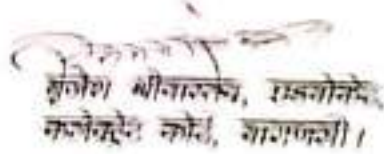 बृजेश श्रीवास्तव, एडवोकेट
कलेक्ट्रेट कोर्ट, वाराणसी।